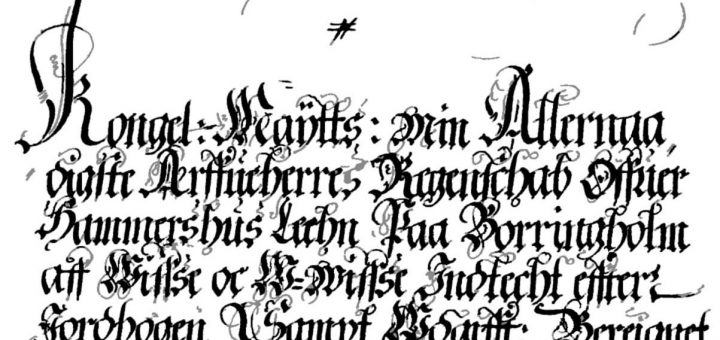 Kongel: Maÿtts: Min Allernaa
digste Arffueherres Regenschab Offuer
Hammershus Læhn Paa Borringholm
aff Wisse oc W=wisse Indtecht effter
Jordbogen, Sampt Beregnet